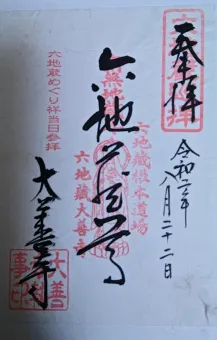 奉拝
令和二年
八月二十二日
六地蔵根本道場
六地蔵尊
六地蔵大善寺
六地蔵めぐり祥当日参拝
大善寺